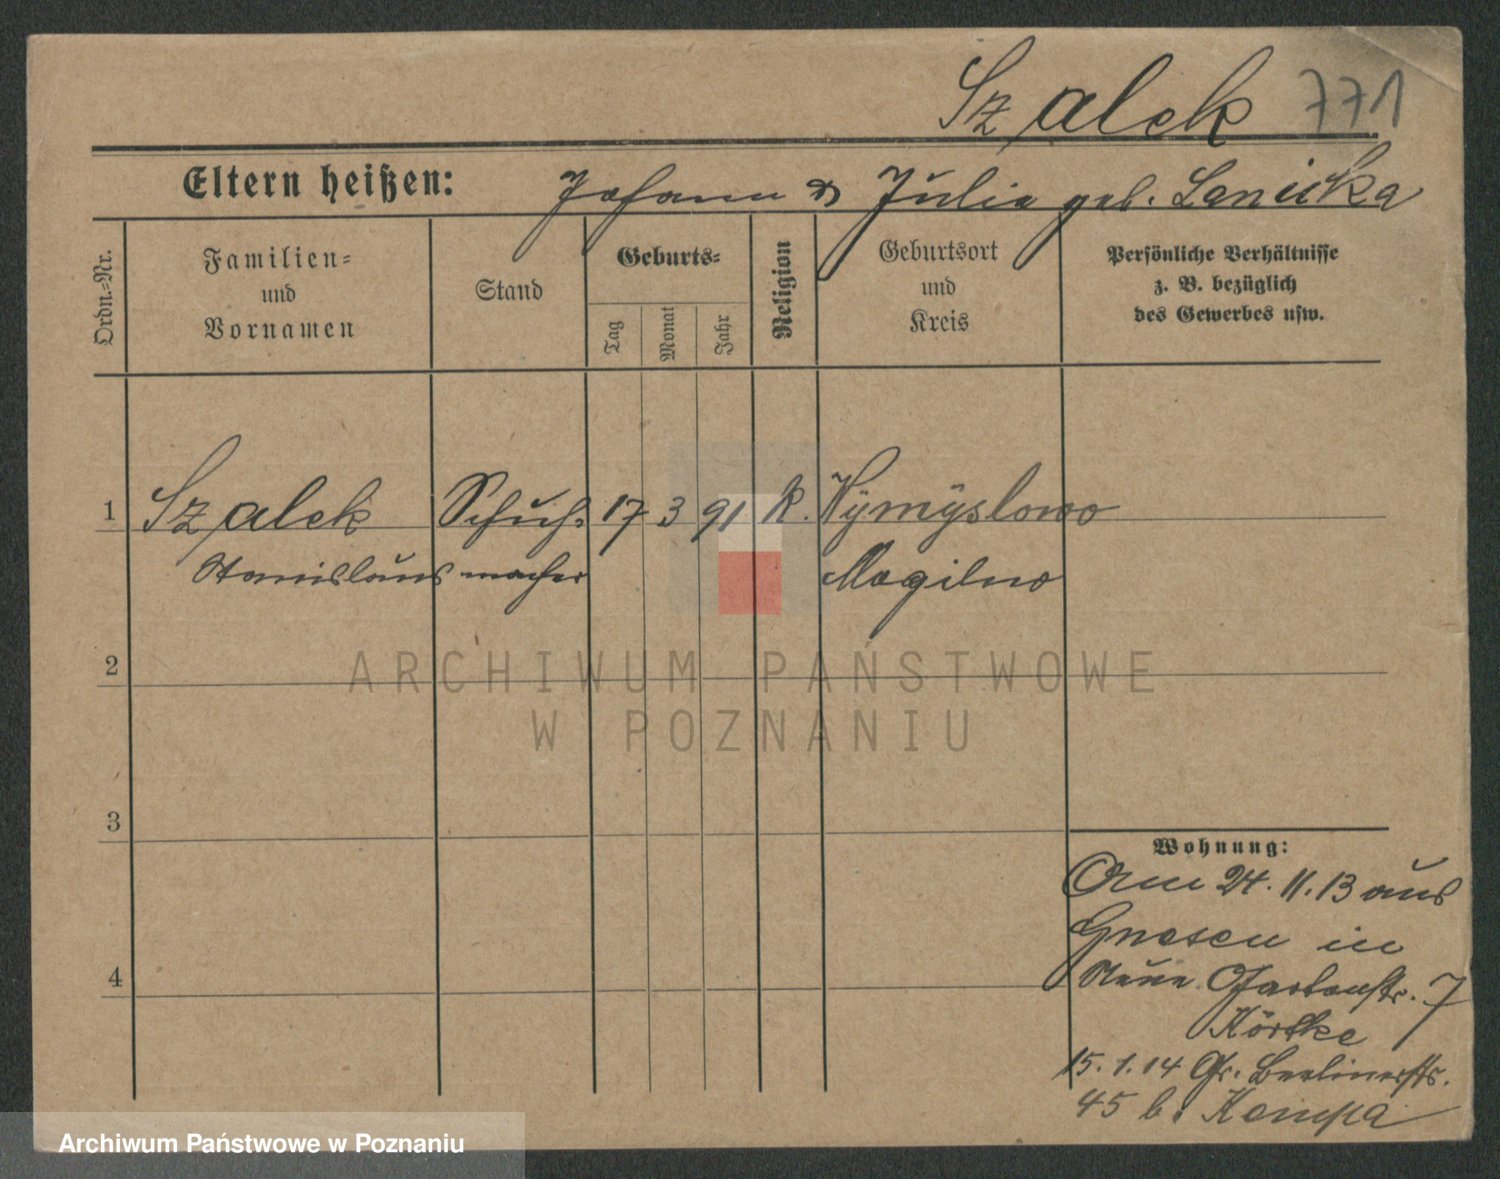 Szalek 771
Eltern heißen: Johann & Julia geb. Lanicka
Ordn.-Nr.
Familien-
und
Vornamen
Stand
Geburts-
Tag
Monat
Jahr
Religion
Geburtsort
und
Kreis
Persönliche Verhältnisse
z. B. bezüglich
des Gewerbes usw.
1 Szalek Schuh- 17 3 91 k. Wymyslowo
Stanislaus macher Mogilno
ARCHIWUM PAŃSTWOWE
W POZNANIU
2
3
4
Wohnung:
Am 24.11.13 aus
Gnesen in
Neue Gartenstr. 7
Körtke
15.1.14 Gr. Berlinerstr.
45 b. Kempa
Archiwum Państwowe w Poznaniu